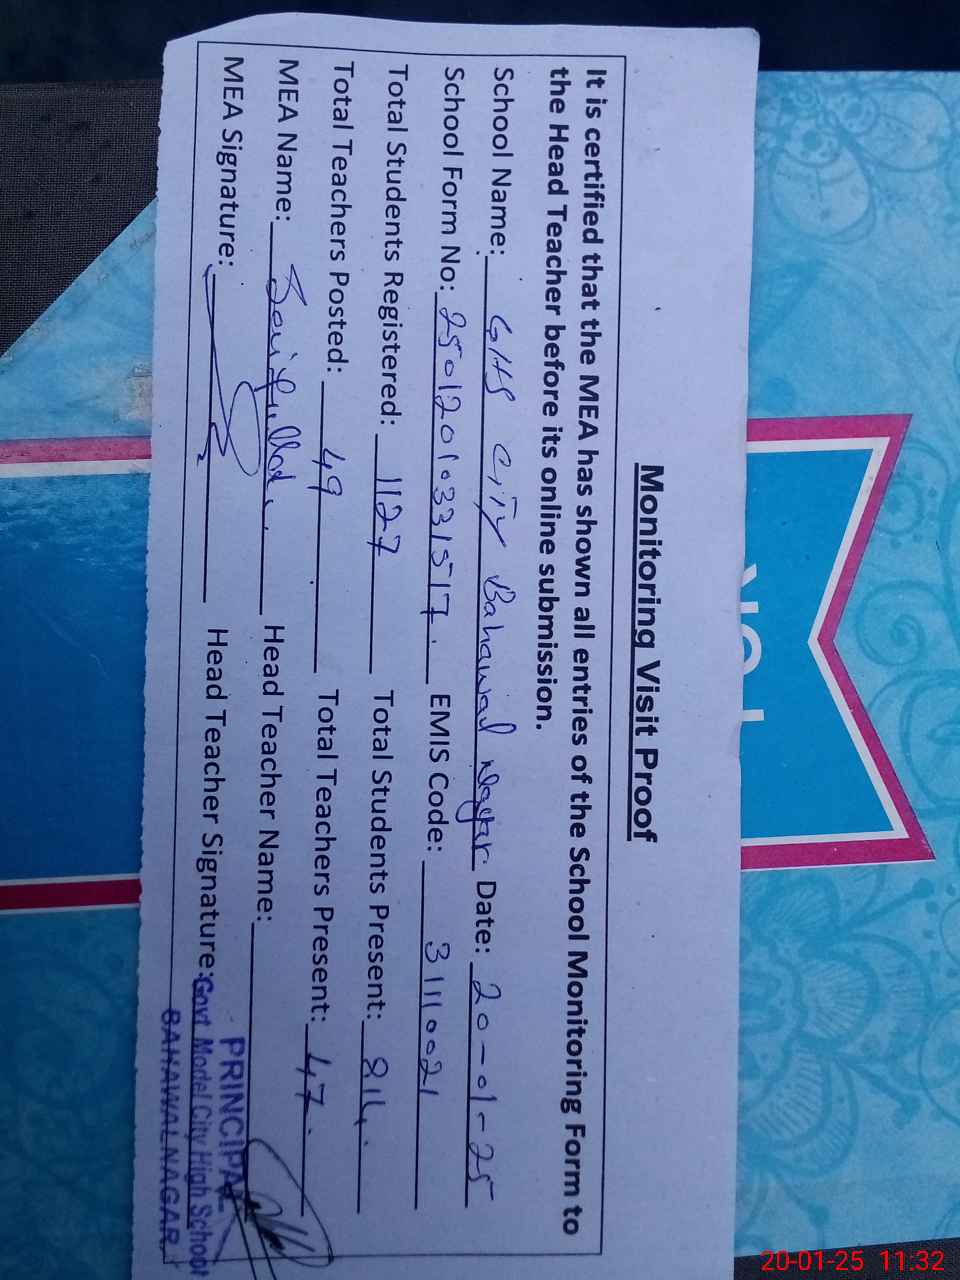 Monitoring Visit Proof
It is certified that the MEA has shown all entries of the School Monitoring Form to
the Head Teacher before its online submission.
School Name: GHS City Bahawal Nagar. Date: 20-01-25
School Form No: 25012010331517. EMIS Code: 31110021
Total Students Registered: 1127 Total Students Present: 814.
Total Teachers Posted: 49 Total Teachers Present: 47.
MEA Name: Head Teacher Name:
MEA Signature: Head Teacher Signature:
PRINCIPAL
Govt Model City High School
BAHAWALNAGAR
20-01-25 11:32